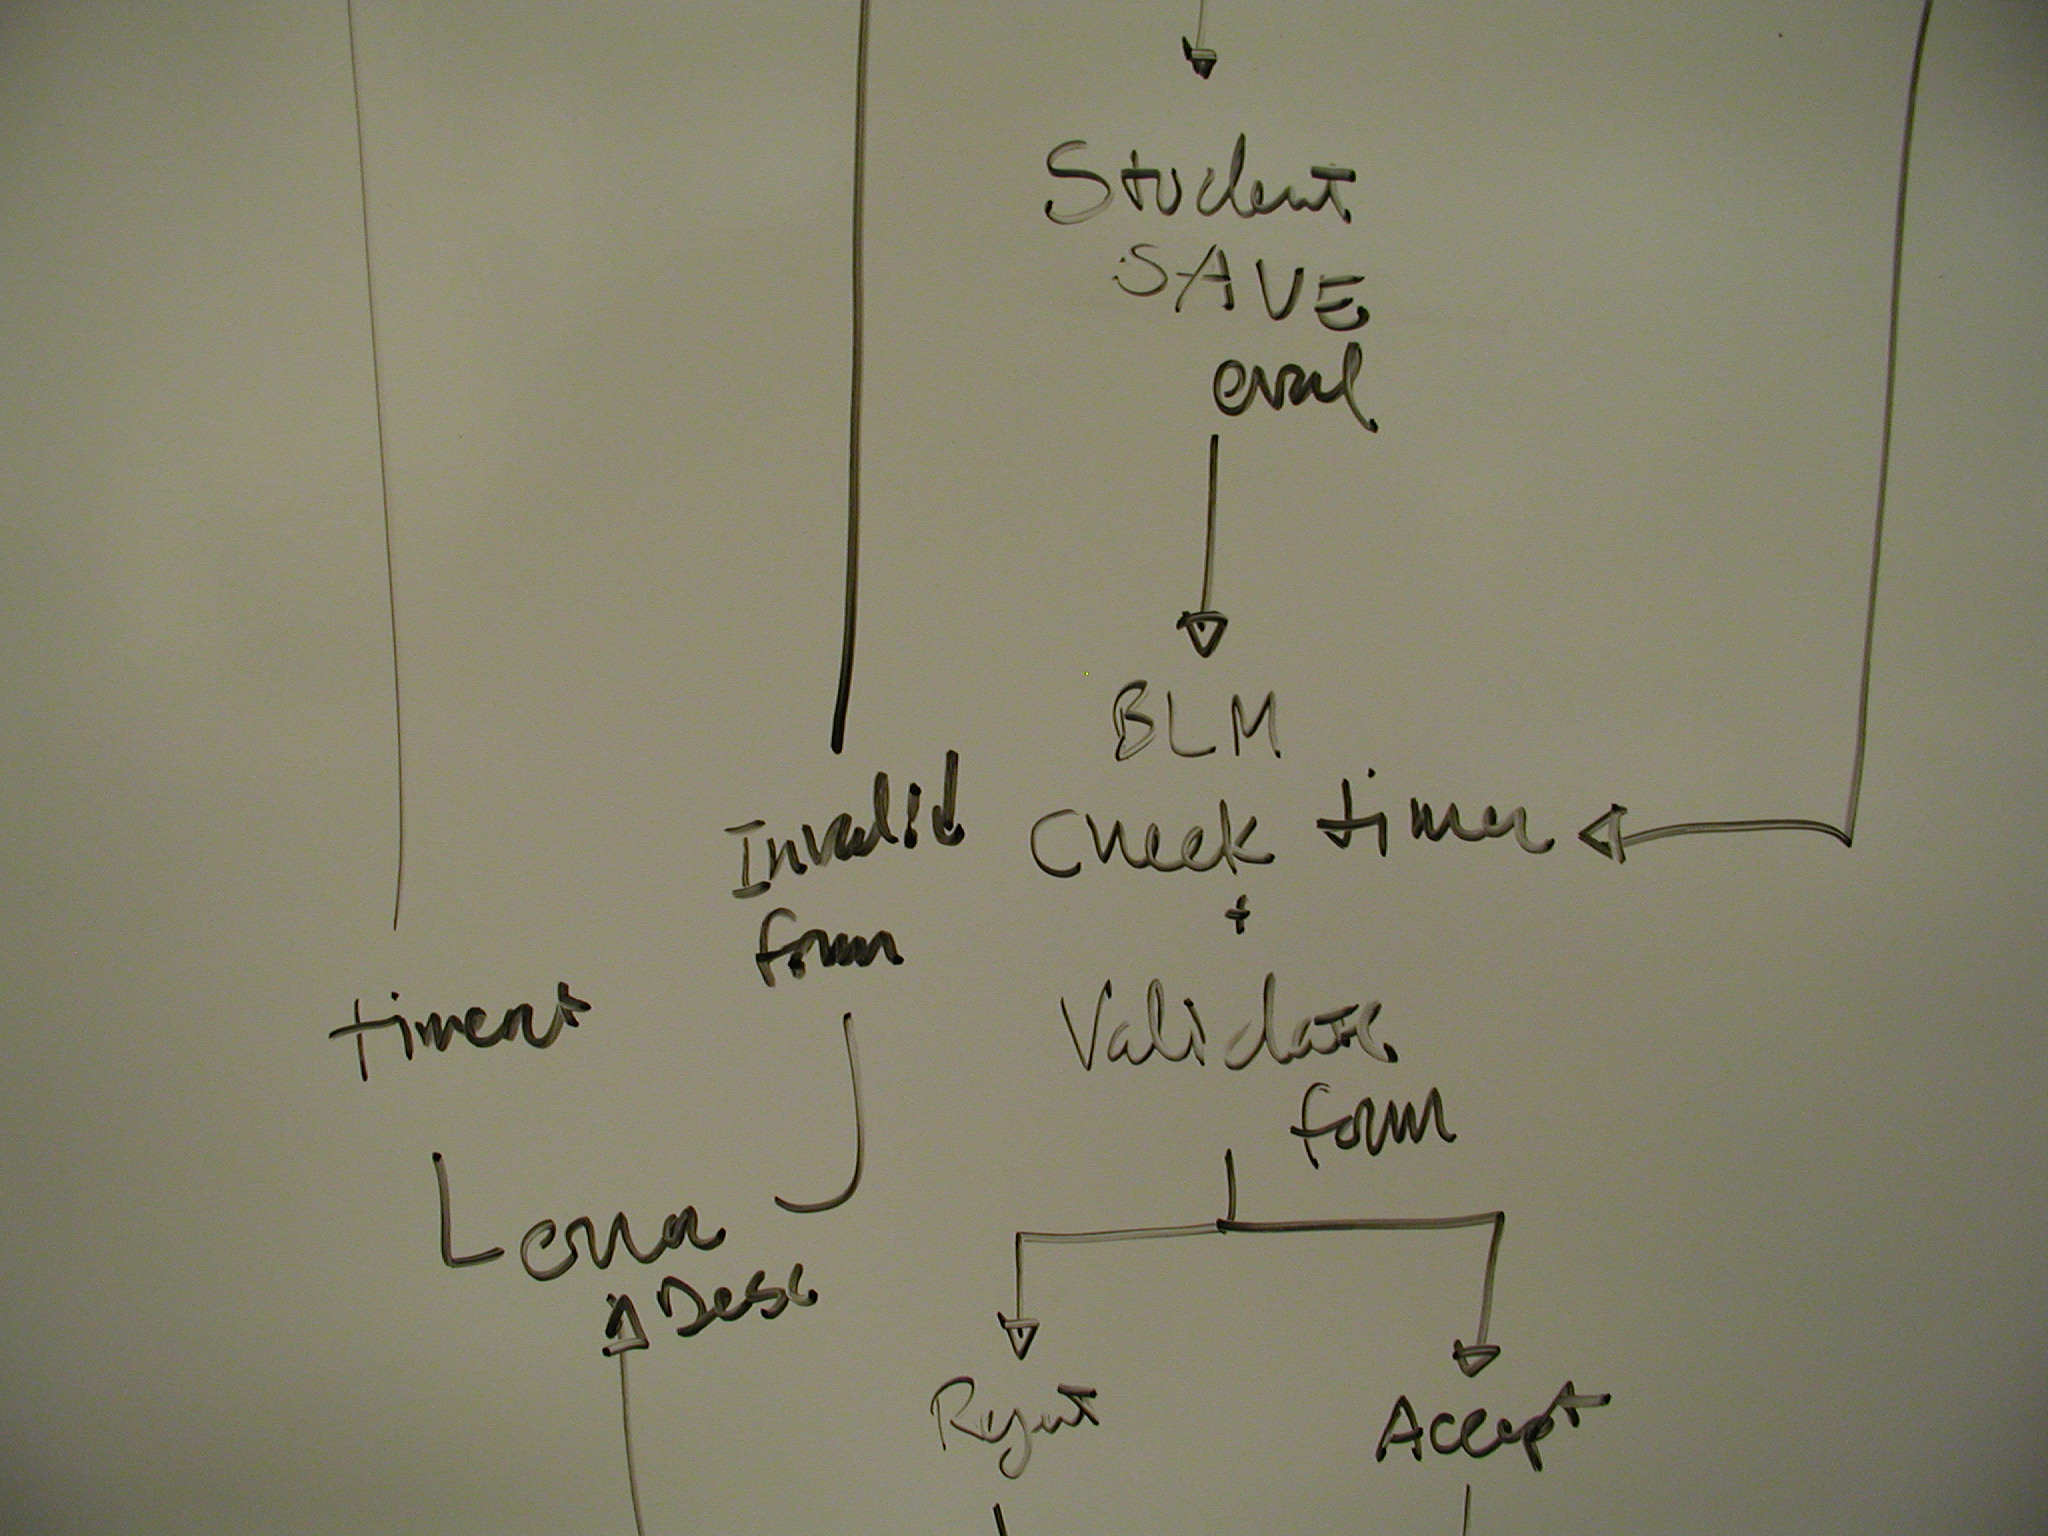 Student
SAVE
eval
BLM
Check timer
+
Validate
form
Invalid
form
timeout
Error
Desc
Reject
Accept